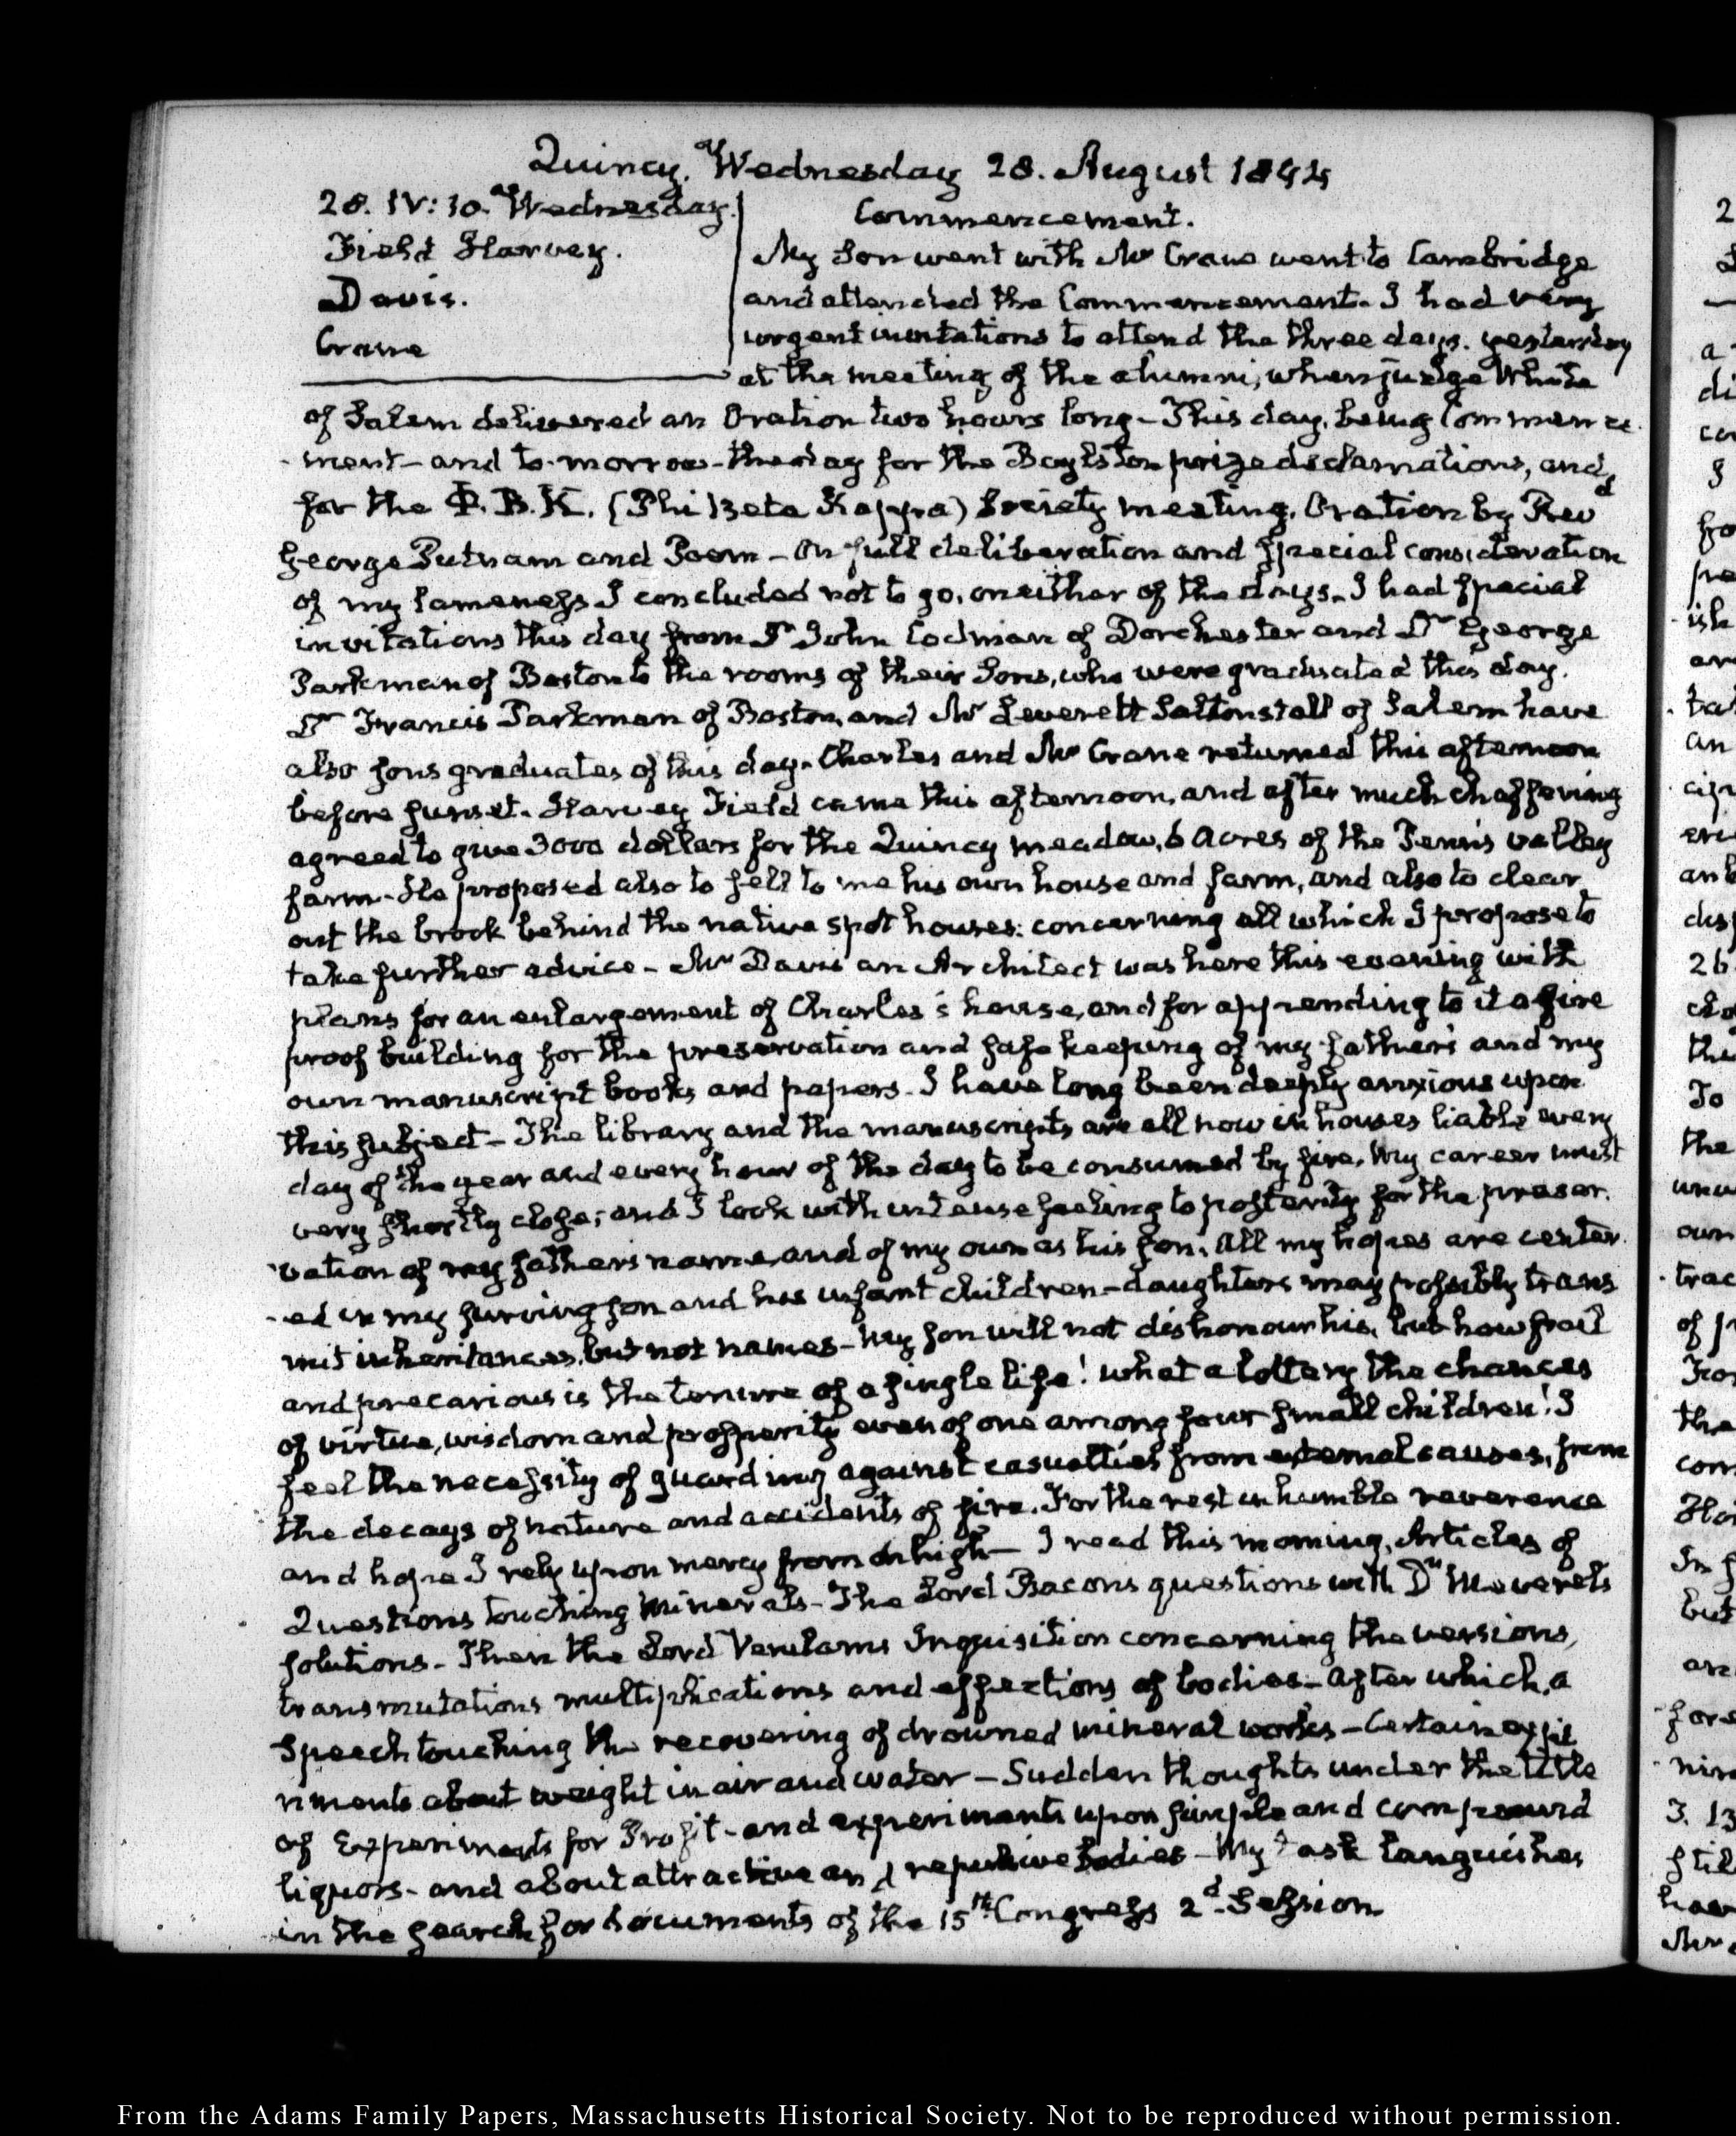 Quincy. Wednesday 28. August 1844
28. IV:30. Wednesday.
Field Harvey.
Davis.
Crane
Commencement.
My Son went with Mr Crane went to Cambridge
and attended the Commencement. I had very
urgent invitations to attend the three days. yesterday
at the meeting of the alumni, when judge White
of Salem delivered an Oration two hours long - This day, being Commence
-ment - and to-morrow - the day for the Boylston prize declamations, and
for the Φ. B. K. (Phi Beta Kappa) Society meeting. Oration by Revd
George Putnam and Poem - On full deliberation and special consideration
of my lameness I concluded not to go, on either of the days. I had special
invitations this day from Dr John Codman of Dorchester and Dr George
Parkman of Boston to the rooms of their Sons, who were graduated this day.
Dr Francis Parkman of Boston, and Mr Leverett Saltonstall of Salem have
also sons graduates of this day. Charles and Mr Crane returned this afternoon
before sunset. Harvey Field came this afternoon, and after much chaffering
agreed to give 3000 dollars for the Quincy meadow, 6 Acres of the Penn's valley
farm. He proposed also to sell to me his own house and farm, and also to clear
out the brook behind the native spot houses: concerning all which I propose to
take further advice - Mr Davis an Architect was here this evening with
plans for an enlargement of Charles's house, and for appending to it a fire
proof building for the preservation and safe keeping of my father's and my
own manuscript books and papers. I have long been deeply anxious upon
this subject - The library and the manuscripts are all now in houses liable every
day of the year and every hour of the day to be consumed by fire. My career must
very shortly close; and I look with intense feeling to posterity for the preser.
vation of my father's name, and of my own as his son. All my hopes are center
-ed in my surviving son and his infant children - daughters may possibly trans
mit inheritances, but not names - My son will not dishonour his, but how frail
and precarious is the tenure of a single life! what a lottery the chances
of virtue, wisdom and prosperity even of one among four small children! I
feel the necessity of guarding against casualties from external causes, from
the decays of nature and accidents of fire. For the rest in humble reverence
and hope I rely upon mercy from on high - I read this morning, Articles of
Questions touching Minerals - The Lord Bacons questions with Dr Meverels
solutions - Then the Lord Verulams Inquisition concerning the versions,
transmutations multiplications and affections of bodies - After which, a
Speech touching the recovering of drowned mineral works - Certain expe
riments about weight in air and water - Sudden thoughts under the title
of Experiments for Profit - and experiments upon simple and compound
liquors - and about attractive and repulsive bodies - My task languishes
in the search for documents of the 15th Congress 2d Session
2
a
di
co
fro
pre
ish
an
tal
an
cip
ere
anb
dis
26
the
To
the
own
trac
of
For
the
com
In
but
are
fore
nin
3. 13
stil
have
From the Adams Family Papers, Massachusetts Historical Society. Not to be reproduced without permission.